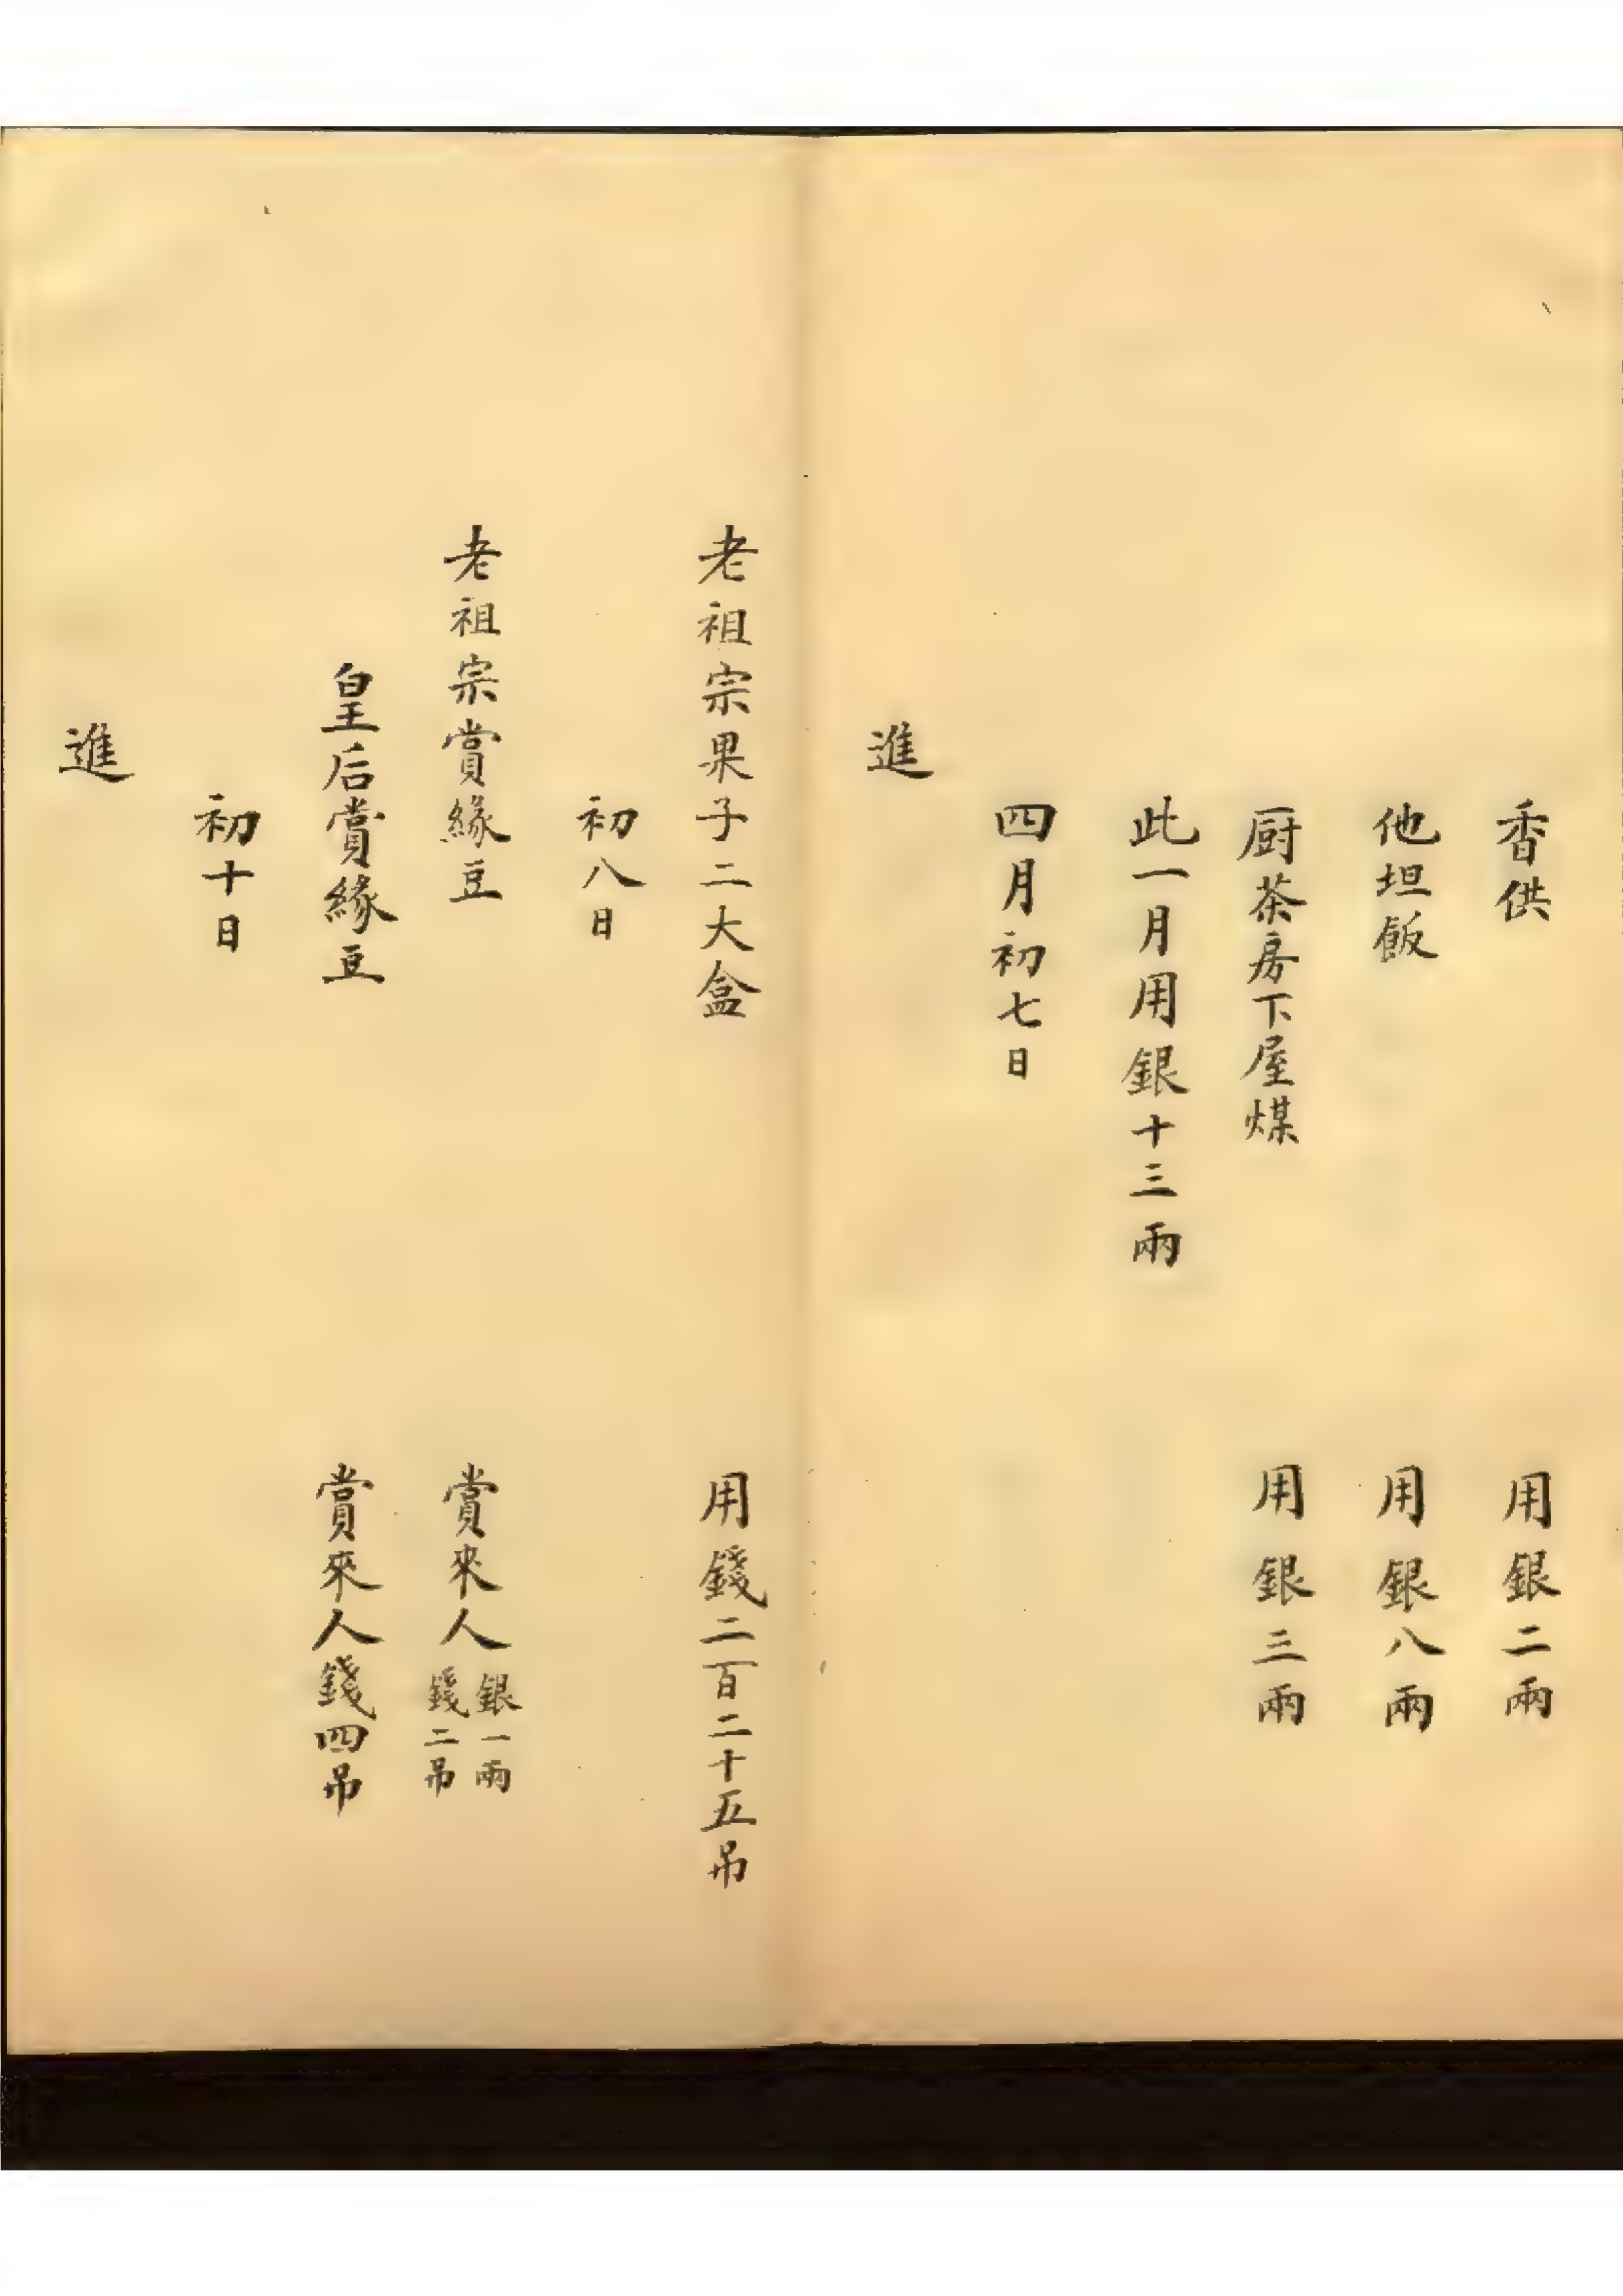 香供 用銀二兩
他坦飯 用銀八兩
厨茶房下屋煤 用銀三兩
此一月用銀十三兩
四月初七日
進
老祖宗果子二大盒 用錢二百二十五吊
初八日
老祖宗賞緣豆 賞來人銀一兩錢二吊
皇后賞緣豆 賞來人錢四吊
初十日
進